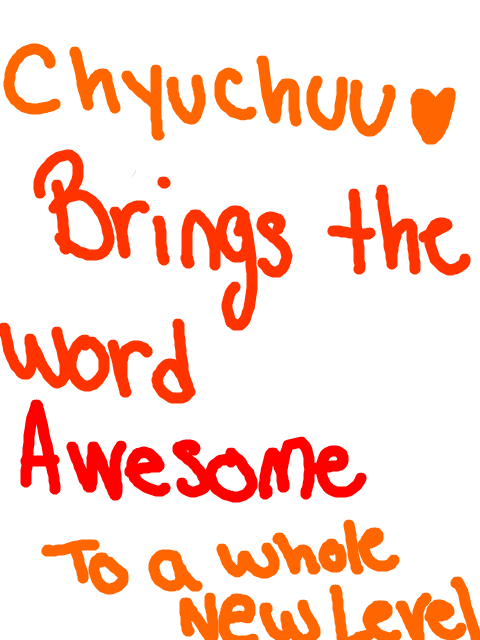 Chyuchuu♥
Brings the
word
Awesome
To a whole
New Level